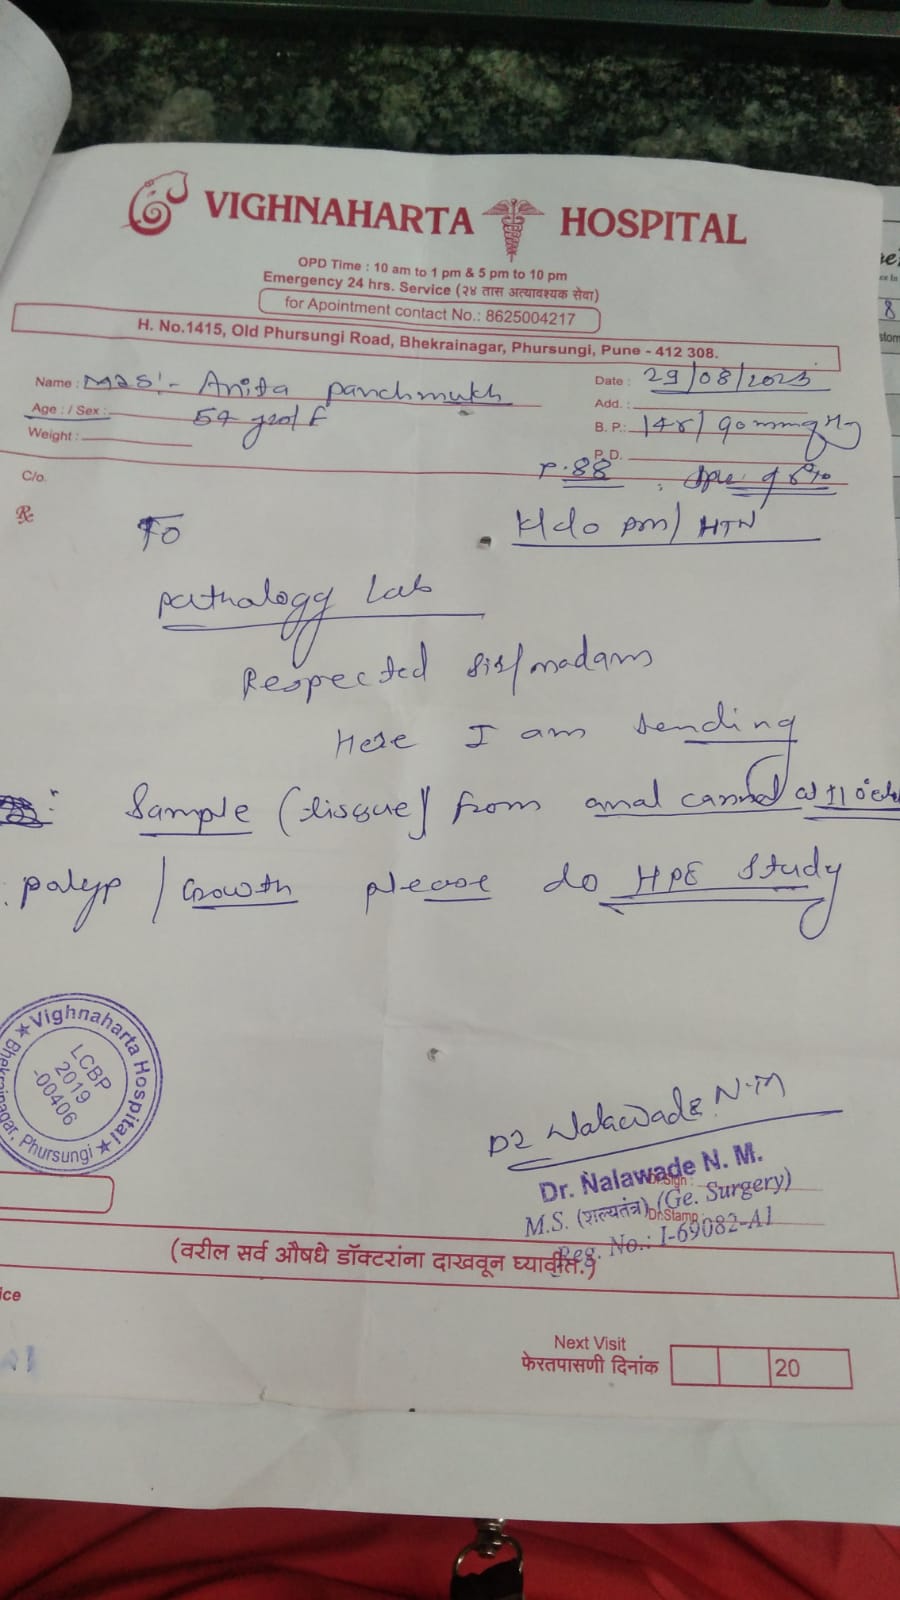 VIGHNAHARTA HOSPITAL
OPD Time : 10 am to 1 pm & 5 pm to 10 pm
Emergency 24 hrs. Service (२४ तास अत्यावश्यक सेवा)
for Apointment contact No.: 8625004217
H. No.1415, Old Phursungi Road, Bhekrainagar, Phursungi, Pune - 412 308.
Name : Mrs :- Anita panchmukh
Date : 29/08/2025
Age : / Sex : F
Add. :
Weight :
B. P.: 90 mmHg
P. D.
P. 88
C/o.
HTN
To
pathalogy Lab
Respected sir/madam
Here I am sending
Sample (tissue) from anal cannal at 11 o'clo
polyp / Growth please do HPE study
Vighnaharta Hospital
Bhekrainagar, Phursungi
LCBP
2019
-00406
Dr Nalawade N.M
Dr. Nalawade N. M.
Dr.Sign :
M.S. (शल्यतंत्र) (Ge. Surgery)
Dr.Stamp :
Reg. No.: I-69082-A1
(वरील सर्व औषधे डॉक्टरांना दाखवून घ्यावीत.)
ice
Next Visit
फेरतपासणी दिनांक 20